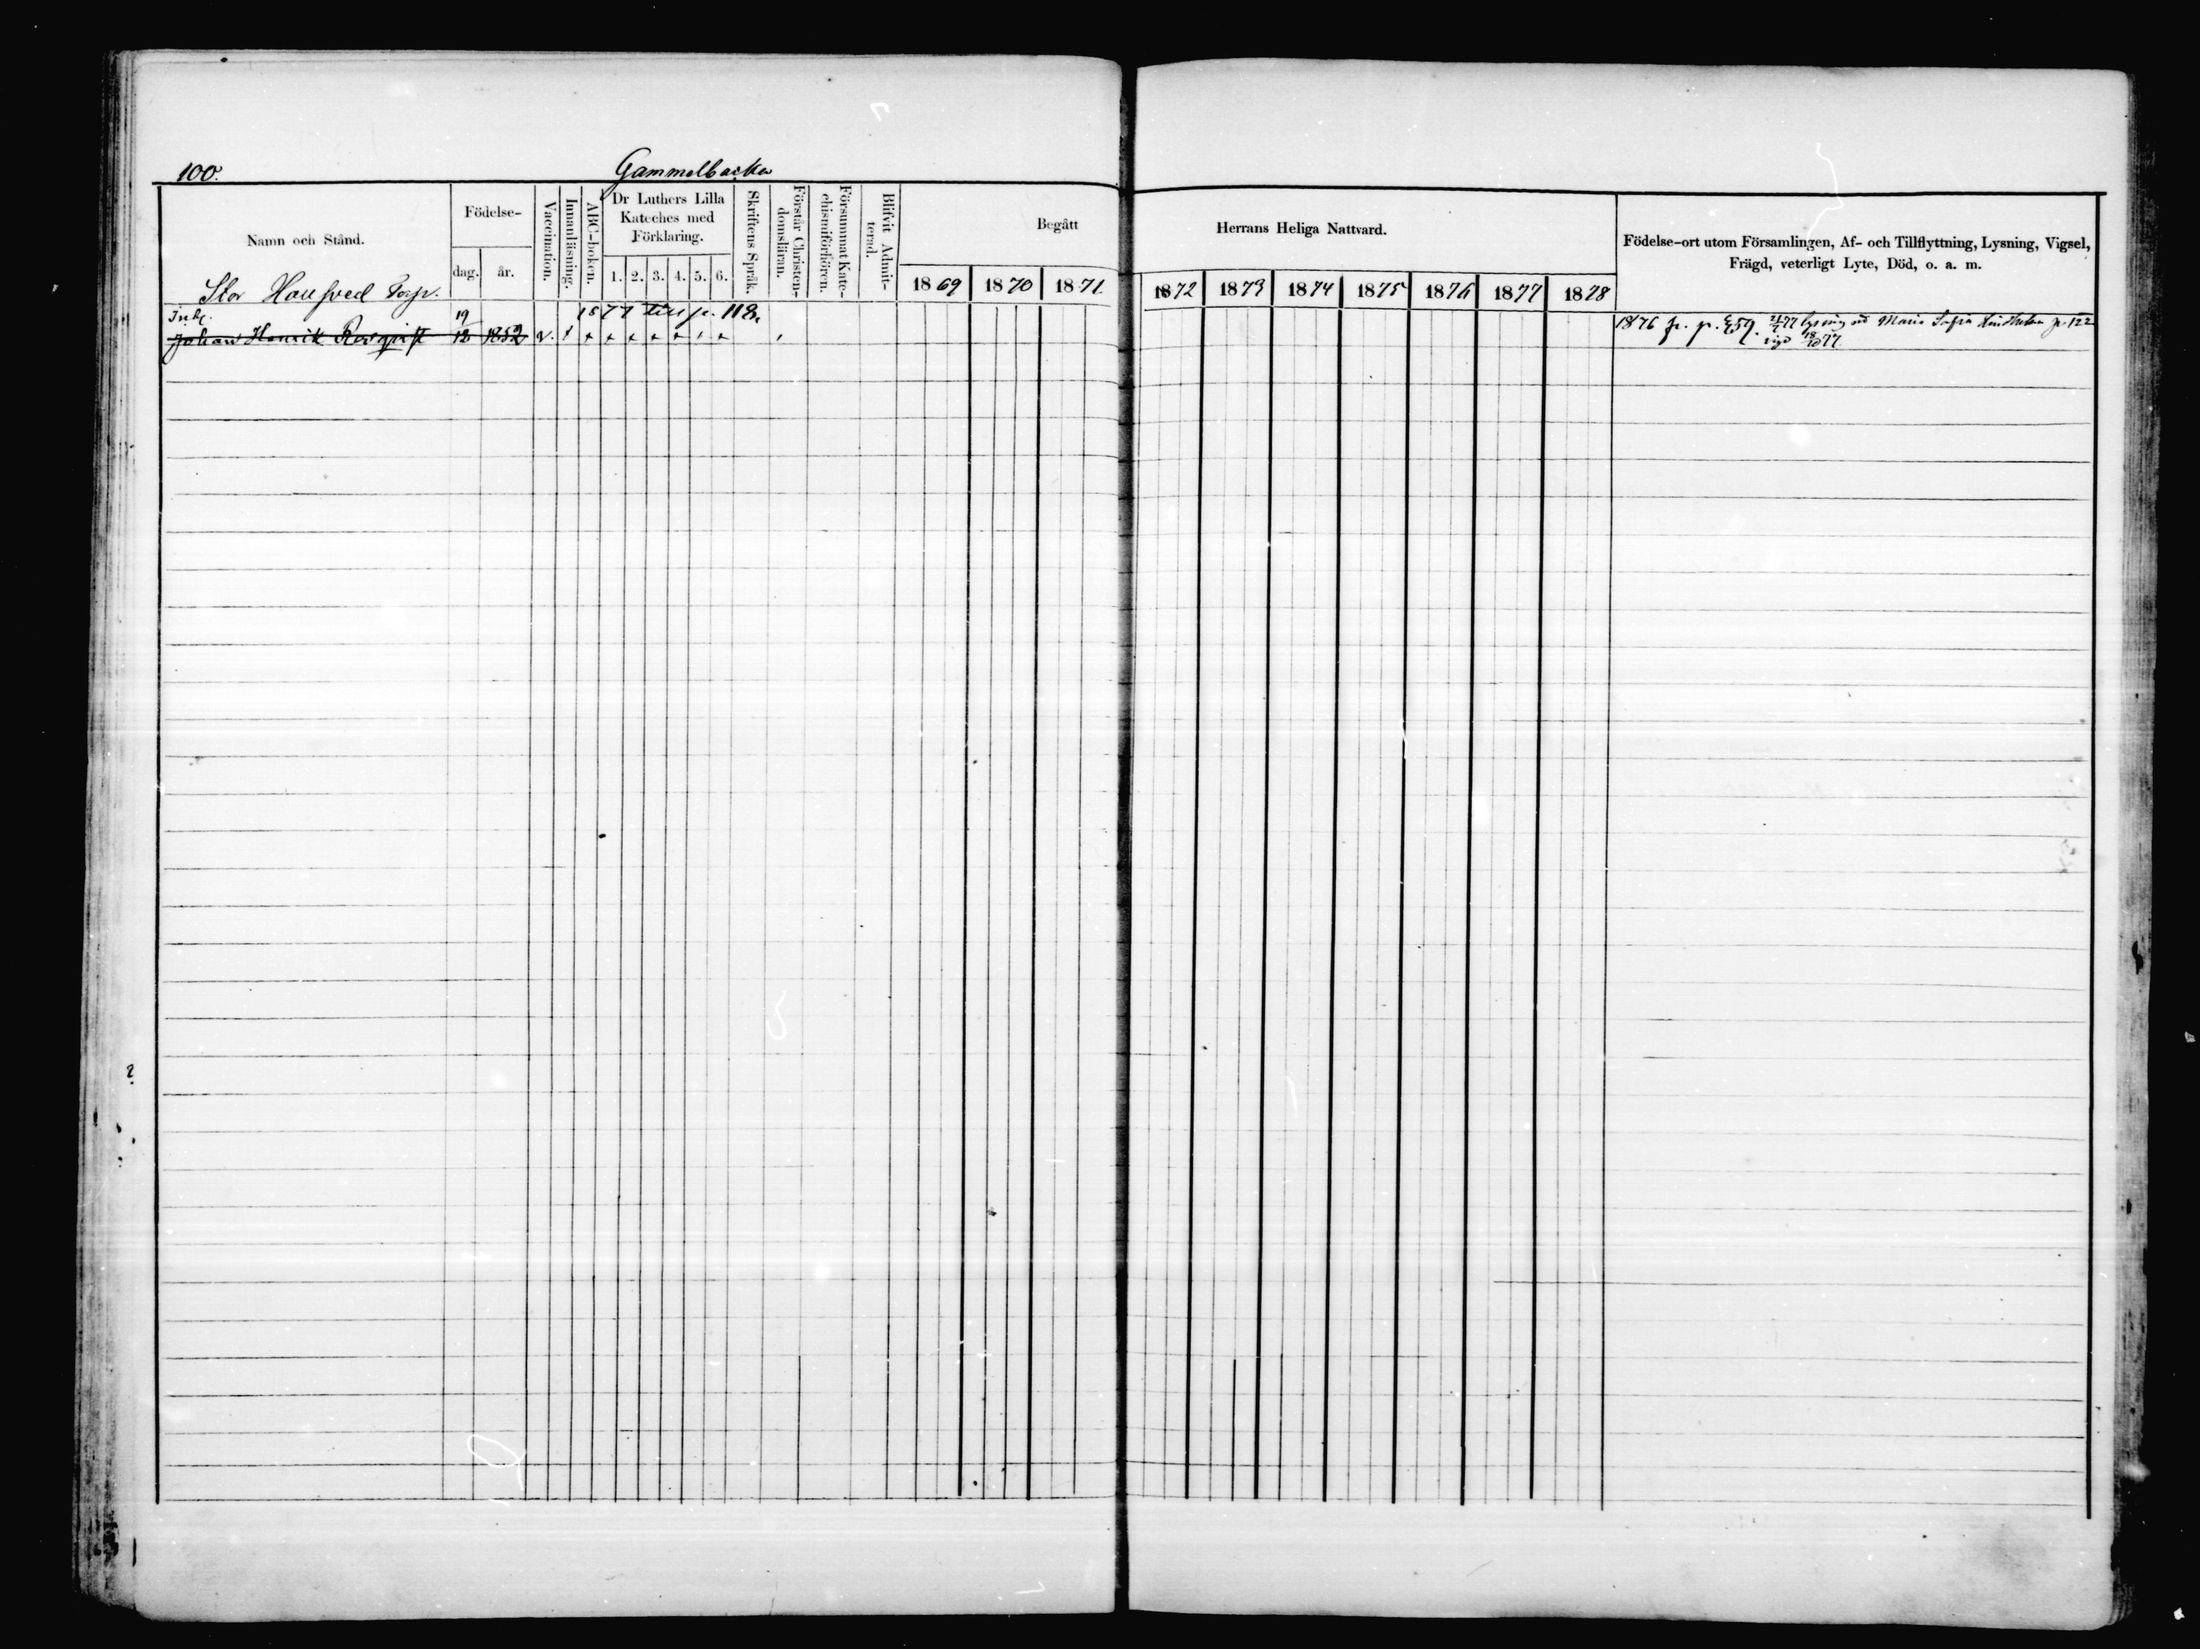 100. Gammelbacka
Namn och Stånd.
Födelse-
dag. år.
Vaccination.
Innanläsning.
ABC-boken.
Dr Luthers Lilla
Kateches med
Förklaring.
1. 2. 3. 4. 5. 6.
Skriftens Språk.
Förstår Christen-
domsläran.
Försummat Kate-
chismiförhören.
Blifvit Admit-
terad.
Begått
Herrans Heliga Nattvard.
1869 1870 1871
1872 1873 1874 1875 1876 1877 1878
Födelse-ort utom Församlingen, Af- och Tillflyttning, Lysning, Vigsel,
Frägd, veterligt Lyte, Död, o. a. m.
Stor Torp.
Inh. 1877 till p. 118.
Johan Henrik 19/12 1852 v.
1876 fr. p. 21/7 77 lysning Maria Sofia p. 122
vigd 18/10 77.